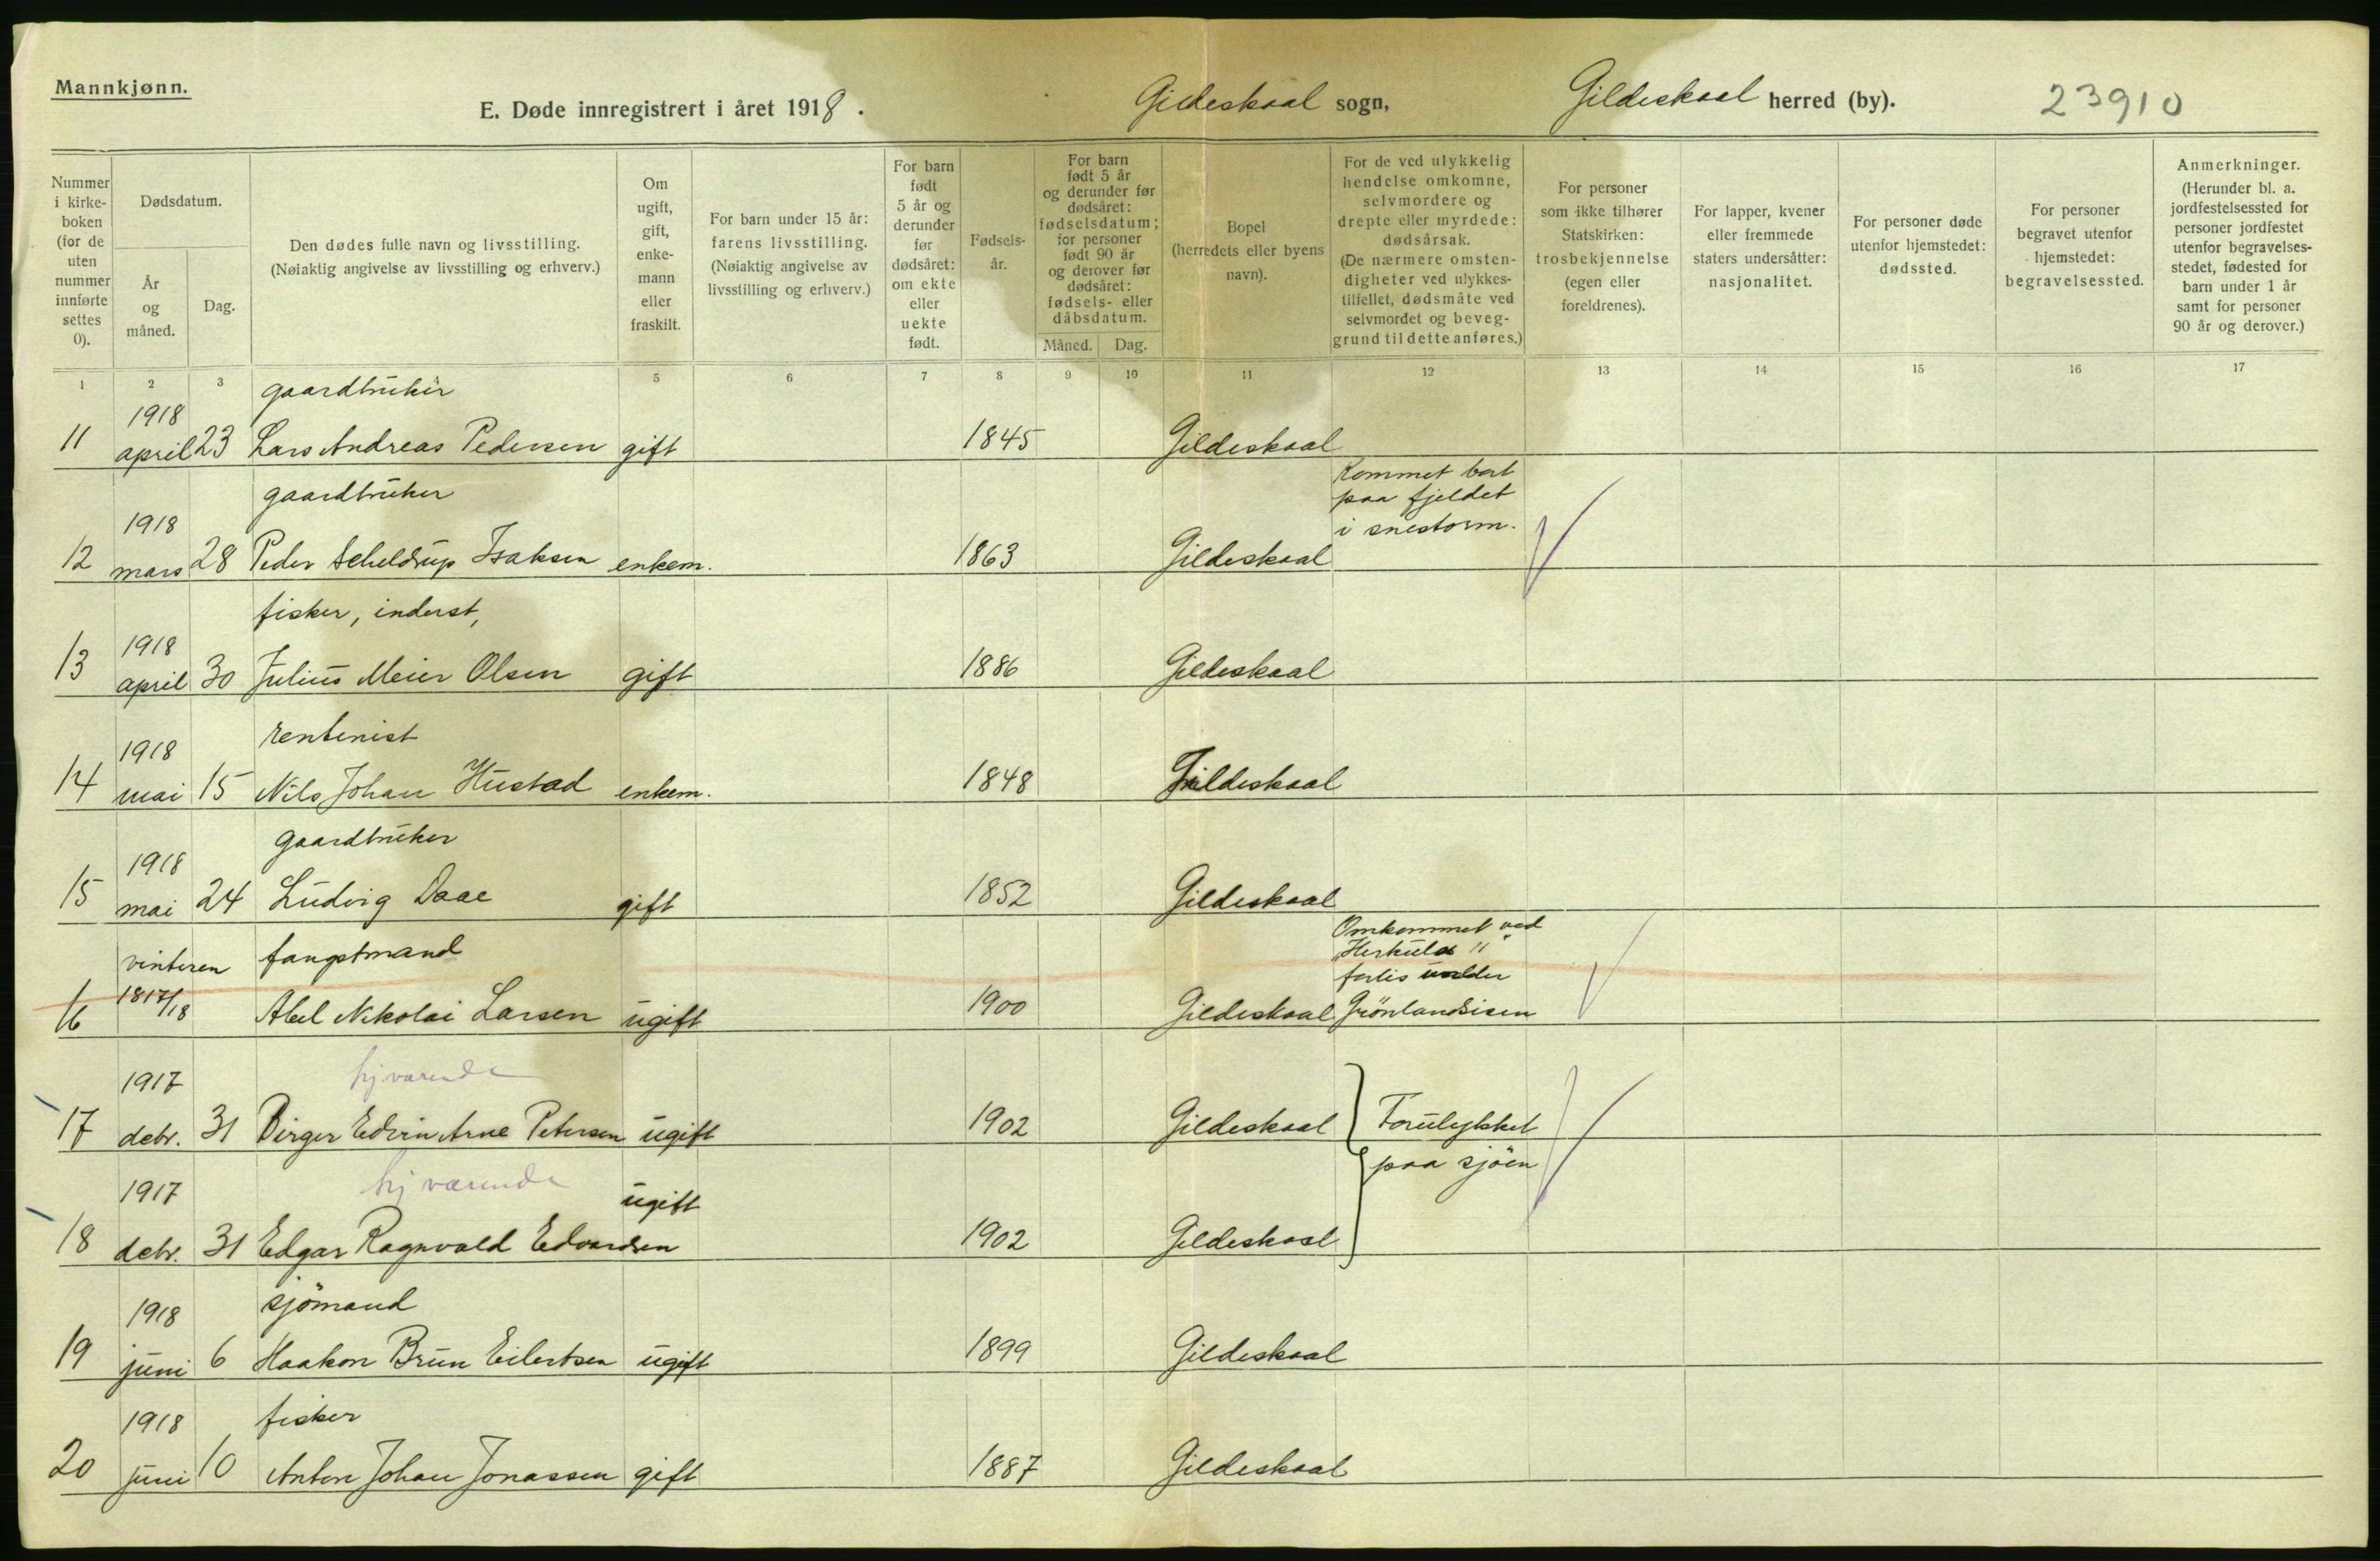 Mannkjønn.
E. Døde innregistrert i året 1918.
Gildeskaal sogn,
Gildeskaal herred (by).
23910
Nummer i kirke-boken (for de uten nummer innførte settes 0).
Dødsdatum.
År og måned.
Dag.
Den dødes fulle navn og livsstilling. (Nøiaktig angivelse av livsstilling og erhverv.)
Om ugift, gift, enke-mann eller fraskilt.
For barn under 15 år: farens livsstilling. (Nøiaktig angivelse av livsstilling og erhverv.)
For barn født 5 år og derunder før dødsåret: om ekte eller uekte født.
Fødsels-år.
For barn født 5 år og derunder før dødsåret: fødselsdatum; for personer født 90 år og derover før dødsåret: fødsels- eller dåbsdatum.
Måned. Dag.
Bopel (herredets eller byens navn).
For de ved ulykkelig hendelse omkomne, selvmordere og drepte eller myrdede: dødsårsak. (De nærmere omsten-digheter ved ulykkes-tilfellet, dødsmåte ved selvmordet og beveg-grund til dette anføres.)
For personer som ikke tilhører Statskirken: trosbekjennelse (egen eller foreldrenes).
For lapper, kvener eller fremmede staters undersåtter: nasjonalitet.
For personer døde utenfor hjemstedet: dødssted.
For personer begravet utenfor hjemstedet: begravelsessted.
Anmerkninger. (Herunder bl. a. jordfestelsessted for personer jordfestet utenfor begravelses-stedet, fødested for barn under 1 år samt for personer 90 år og derover.)
1 2 3 4 5 6 7 8 9 10 11 12 13 14 15 16 17
gaardbruker
1918
11 april 23 Lars Andreas Pedersen gift 1845 Gildeskaal
gaardbruker
Kommet bort
paa fjeldet
1918
i snestorm.
12 mars 28 Peder Scheldrup Isaksen enkem. 1863 Gildeskaal
fisker, inderst,
1918
13 april 30 Julius Meier Olsen gift 1886 Gildeskaal
rentenist
1918
14 mai 15 Nils Johan Hustad enkem. 1848 Gildeskaal
gaardbruker
1918
15 mai 24 Ludvig Daae gift 1852 Gildeskaal
Omkommet ved
vinteren fangstmand
"Herkules II"
forlis under
16 1817/18 Abel Nikolai Larsen ugift 1900 Gildeskaal Grönlandsisen
1917 hjværende
17 debr. 31 Birger Edvin Arne Petersen ugift 1902 Gildeskaal Forulykket
paa sjöen
1917 hjværende ugift
18 debr. 31 Edgar Ragnvald Edvardsen 1902 Gildeskaal
1918 sjömand
19 juni 6 Haakon Brun Eilertsen ugift 1899 Gildeskaal
1918 fisker
20 juni 10 Anton Johan Jonassen gift 1887 Gildeskaal